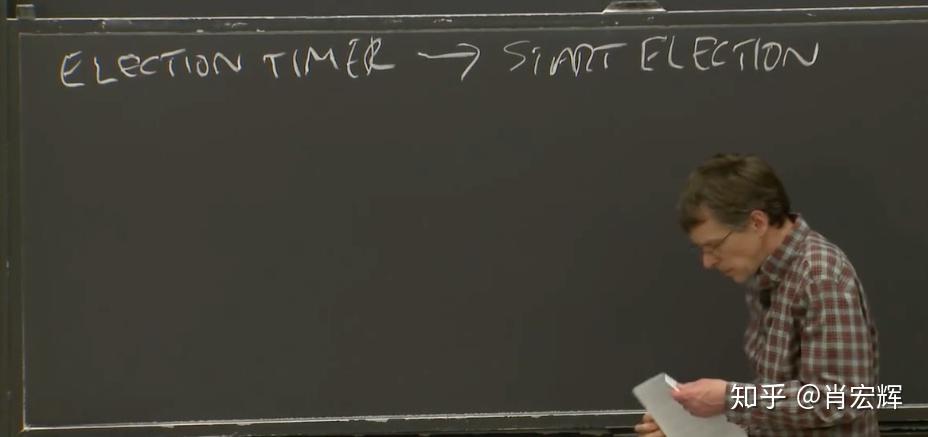 ELECTION TIMER → START ELECTION
知乎 @肖宏辉